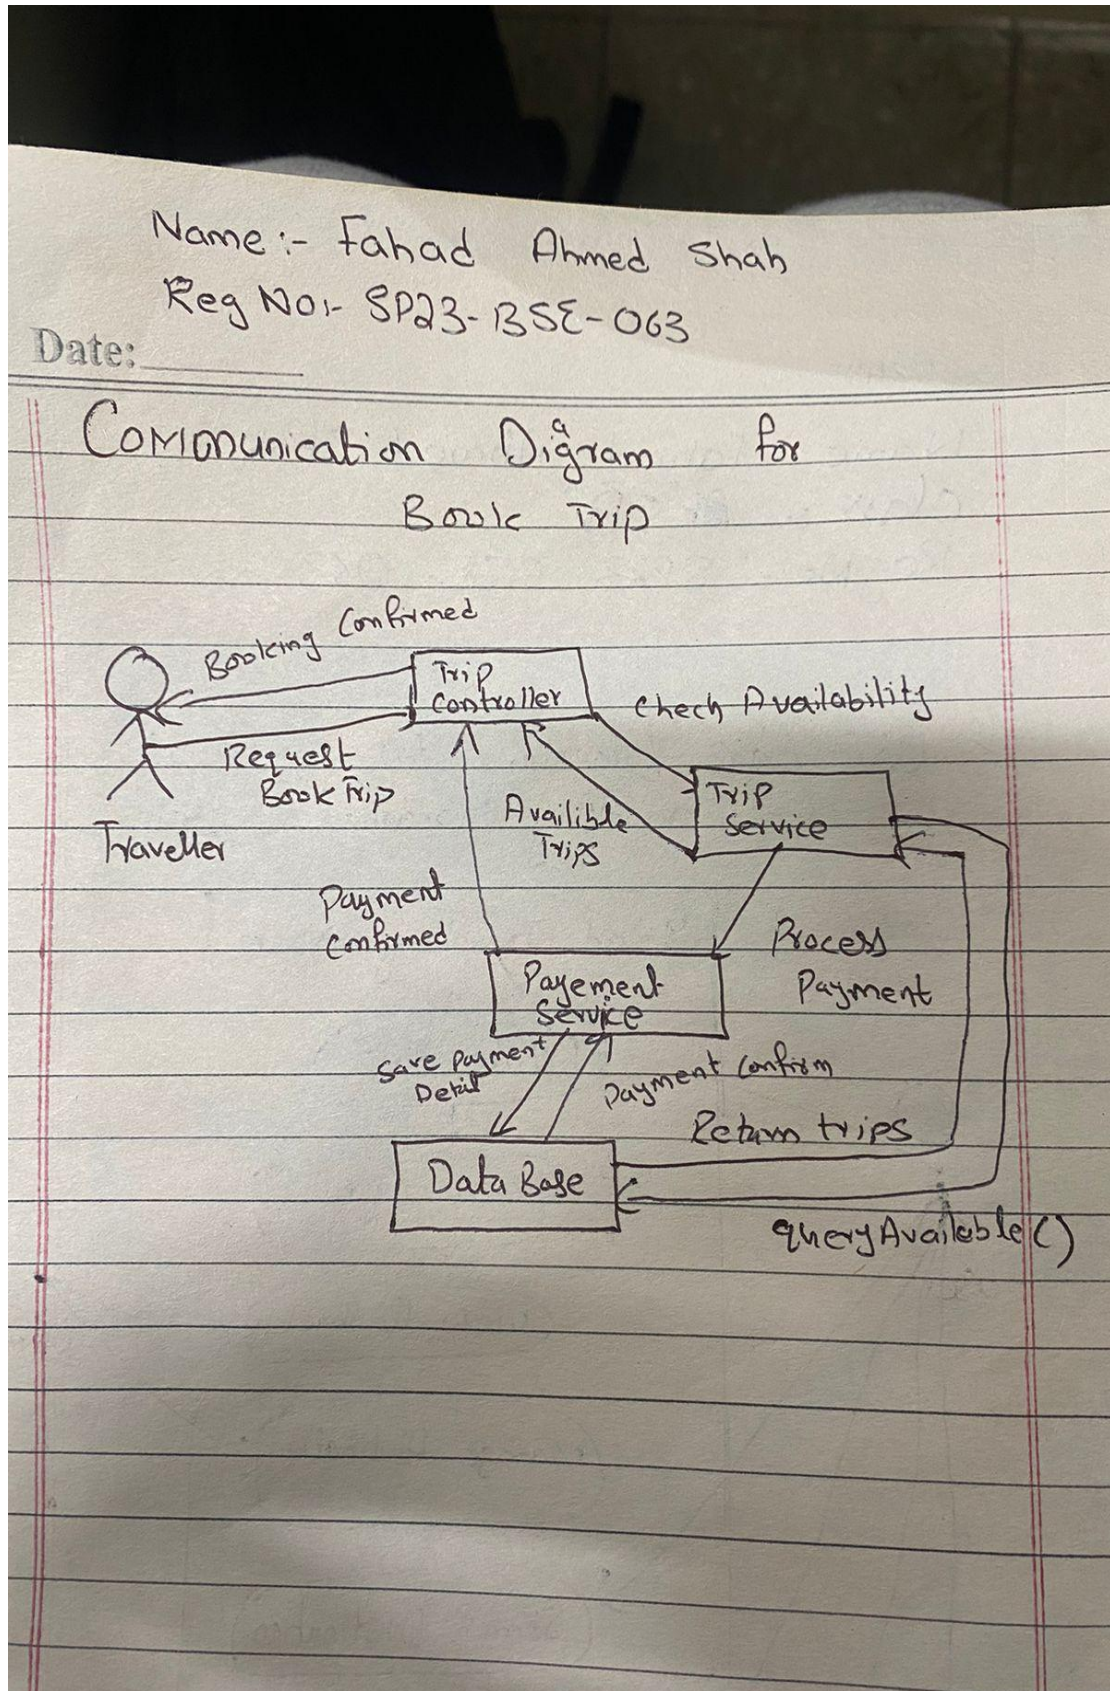 Name :- Fahad Ahmed Shah
Reg No:- SP23-BSE-063
Date:
Communication Digram for
a
Book Trip
Booking Confirmed
Trip
Controller
Check Availability
Request
Book Trip
Traveller
Availible
Trips
Trip
Service
Payment
Confirmed
Process
Payment
Payement
Service
Save Payment
Detail
Payment Confirm
Return trips
Data Base
queryAvailable()